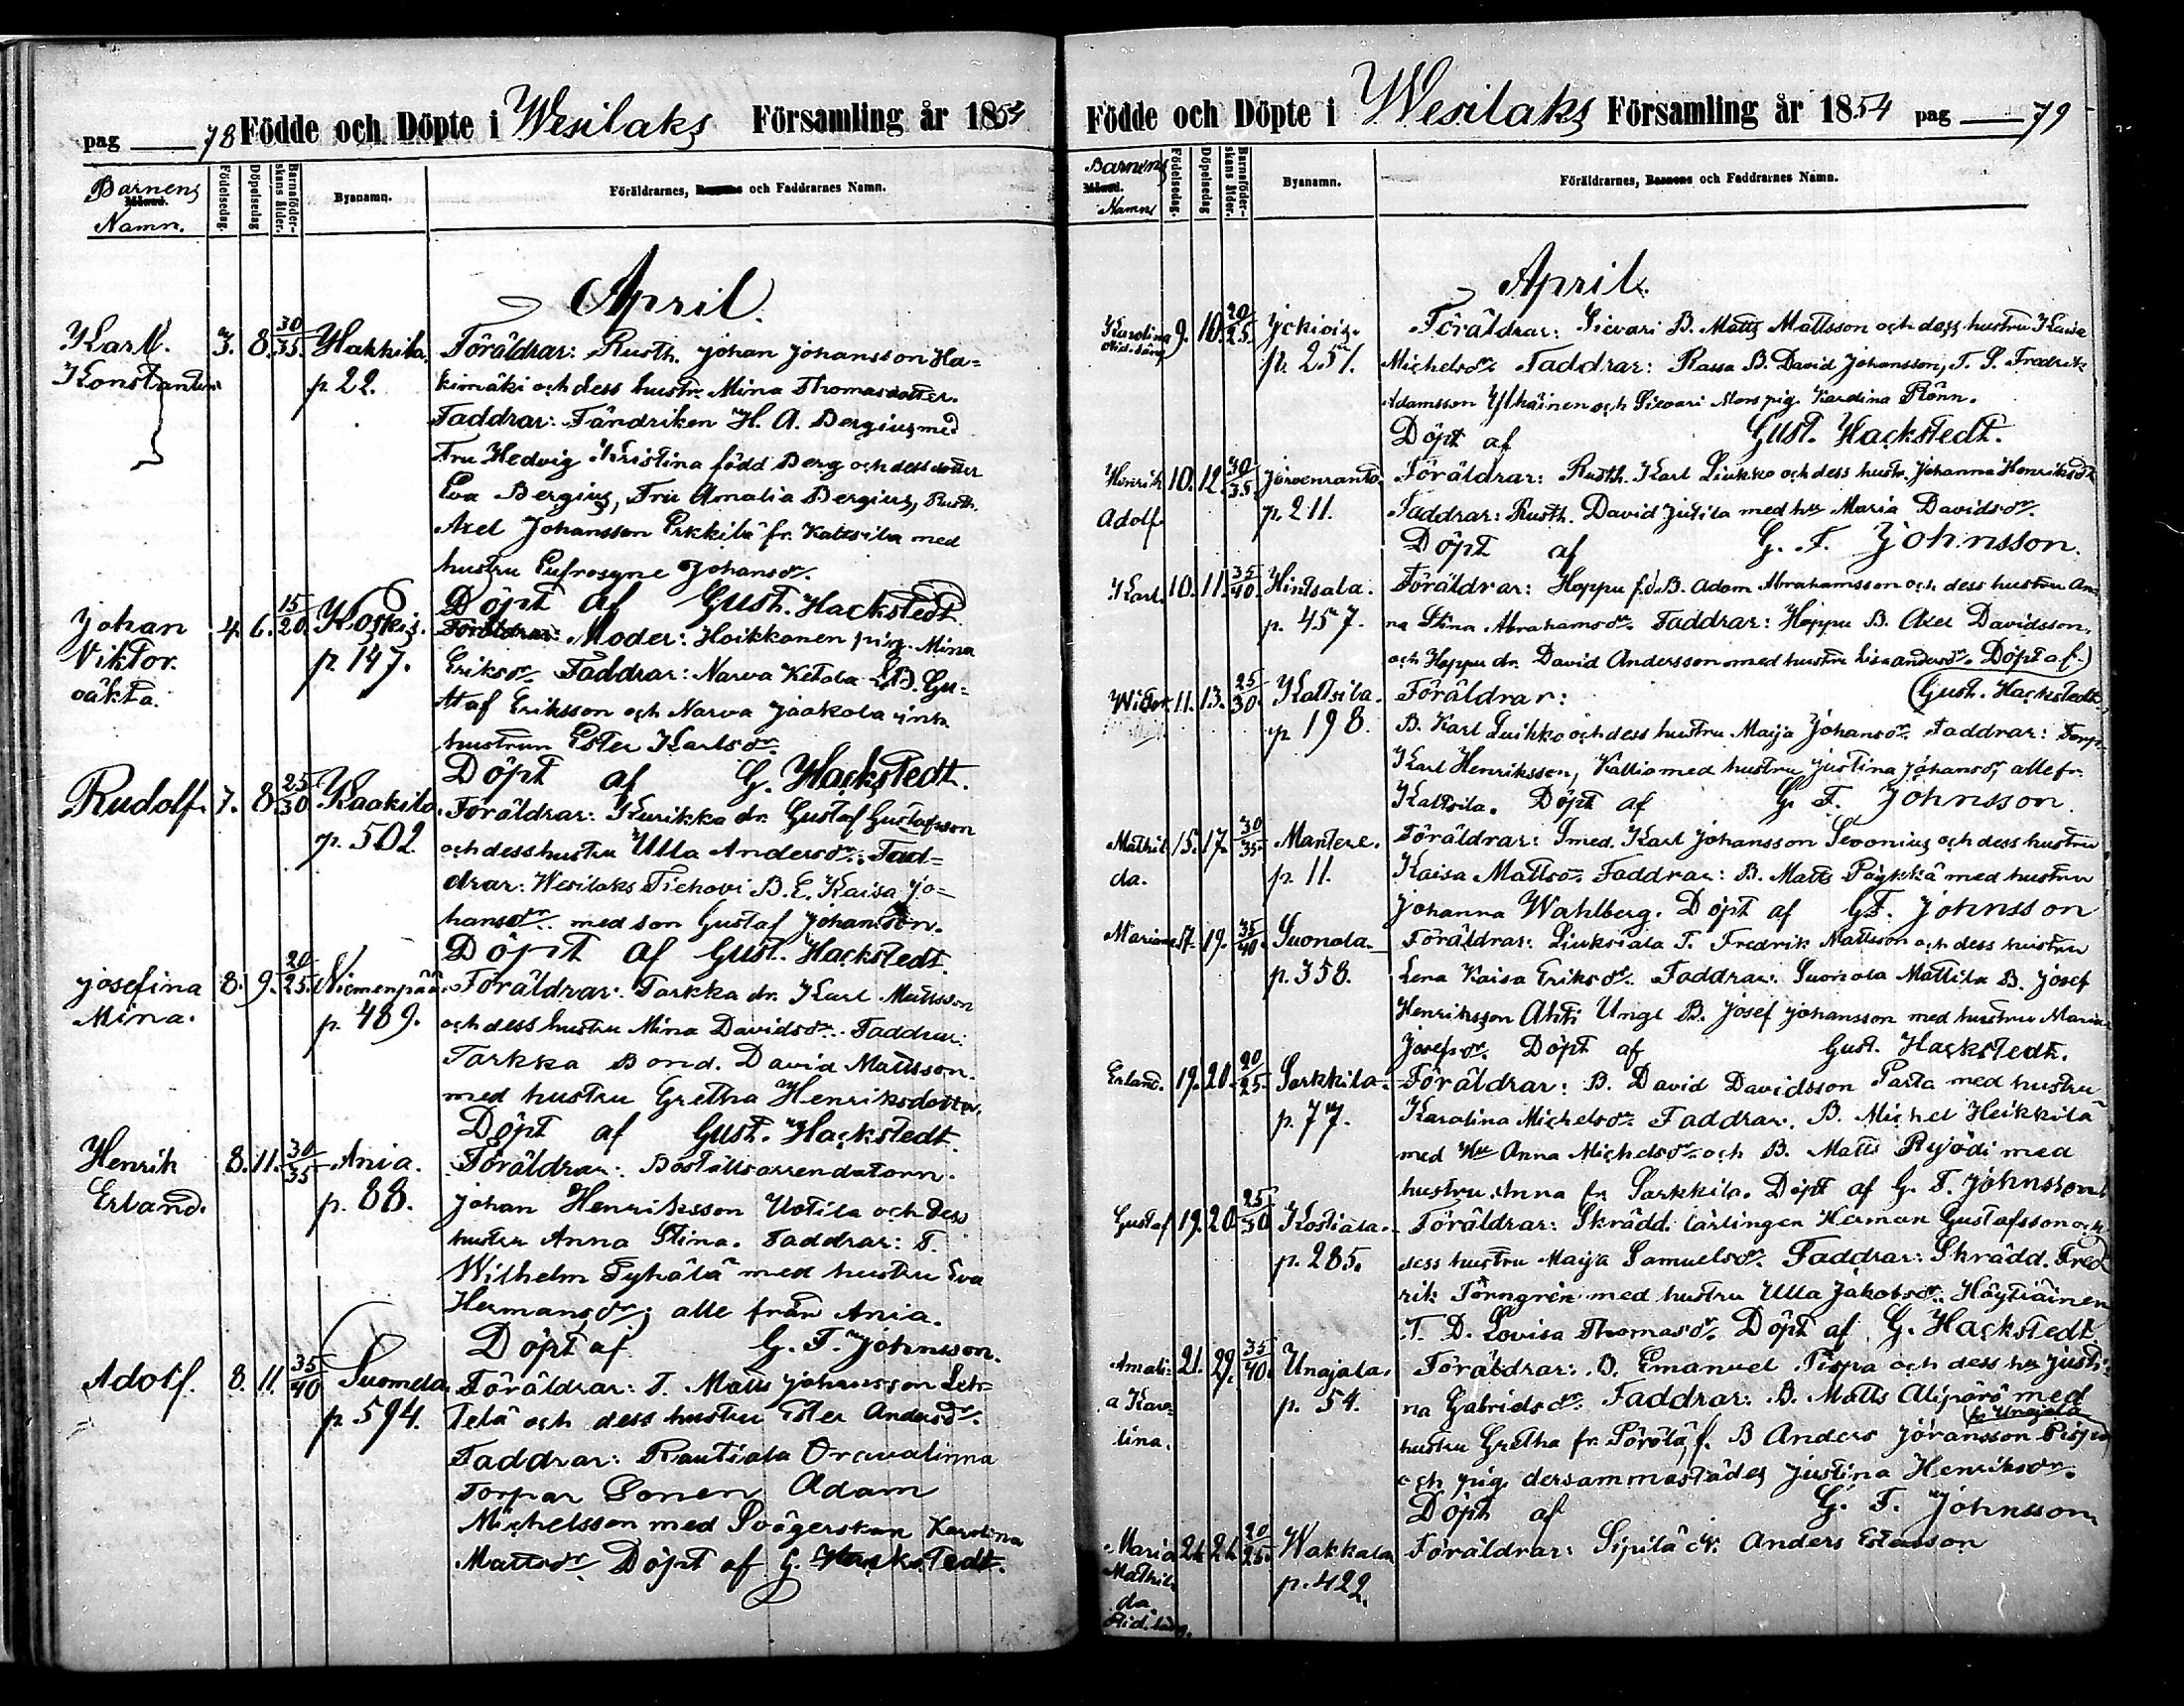 pag 78 Födde och Döpte i Wesilaks Församling år 1854
Barnens Namn.
Födelsedag.
Döpelsedag
Barnaföderskans ålder.
Byanamn.
Föräldrarnes, Barnens och Faddrarnes Namn.
April.
Karl Konstantin 3. 8. 30/35. Hakkila. p. 22.
Föräldrar: Rusth. Johan Johansson Ha-
kimäki och dess hustr. Mina Thomasdotter.
Faddrar: Fändriken H. A. Bergius med
Fru Hedvig Kristina född Berg och dess dotter
Eva Bergius, Fru Amalia Bergius, Rusth.
Axel Johansson Erkkilä fr. Katzsila med
hustru Eufrosyne Johansdr.
Döpt af Gust. Hackstedt.
Johan Viktor. oäkta. 4. 6. 15/20. Koskis. p. 147.
Föräldrar: Moder: Hoikkanen pig. Mina
Eriksdr. Faddrar: Narva Ketola B. Gu-
staf Eriksson och Narva Jaakola inh.
hustrun Ester Karlsdr.
Döpt af G. Hackstedt.
Rudolf. 7. 8. 25/30. Kaakila. p. 502.
Föräldrar: Kurikka dr. Gustaf Gustafsson
och dess hustru Ulla Andersdr. Fad-
drar: Wesilaks Tiehovi B. E. Kaisa Jo-
hansdr. med son Gustaf Johansson.
Döpt af Gust. Hackstedt.
Josefina Mina. 8. 9. 20/25. Niemenpää. p. 489.
Föräldrar: Tarkka dr. Karl Mattsson
och dess hustru Mina Davidsdr. Faddrar:
Tarkka Bond. David Mattsson.
med hustru Gretha Henriksdotter.
Döpt af Gust. Hackstedt.
Henrik Erland. 8. 11. 30/35 Ania. p. 88.
Föräldrar: Boställsarrendatorn.
Johan Henriksson Uotila och dess
hustru Anna Stina. Faddrar: T.
Wilhelm Tyhälä med hustru Eva
Hermansdr; alle från Ania.
Döpt af G. F. Johnsson.
Adolf. 8. 11. 35/40 Suomela p. 594.
Föräldrar: T. Matts Johansson Leh-
telä och dess hustru Ester Andersdr.
Faddrar: Rautiala Oravalinna
Torpar Sonen Adam
Michelsson med Svägerskan Karolina
Mattsdr. Döpt af G. Hackstedt.
Födde och Döpte i Wesilaks Församling år 1854 pag 79
Barnens Namn
Födelsedag.
Döpelsedag
Barnaföderskans ålder.
Byanamn.
Föräldrarnes, Barnens och Faddrarnes Namn.
April.
Karolina 9. 10. 20/25. p. 251.
Föräldrar: Sievari B. Matts Mattsson och dess hustru Kaisa
Michelsdr. Faddrar: Rassa B. David Johansson, T. S. Fredrik
Adamsson Ylhäinen och Sievari Mons pig. Karolina Rönn.
Döpt af Gust. Hackstedt.
Henrik Adolf. 10. 12. 30/35. p. 211.
Föräldrar: Rusth. Karl Liukko och dess hustr. Johanna Henriksdr
Faddrar: Rusth. David Jutila med hu Maria Davidsdr.
Döpt af G. F. Johnsson.
Karl. 10. 11. 35/40. Hintsala. p. 457.
Föräldrar: Hoppu f.d. B. Adam Abrahamsson och dess hustru An-
na Stina Abrahamsdr. Faddrar: Hoppu B. Axel Davidsson,
och Hoppu dr. David Andersson med hustru Lisa andersdr. Döpt af
Gust. Hackstedt.
Wictor 11. 13. 25/30. Kaltsila. p. 198.
Föräldrar:
B. Karl Luihko och dess hustru Maija Johansdr. Faddrar: Torp.
Karl Henriksson, Kallio med hustru Justina Johansdr, alle fr.
Kaltsila. Döpt af G. F. Johnsson.
Mathil-da. 15. 17. 30/35. Mantere. p. 11.
Föräldrar: Smed. Karl Johansson Sevonius och dess hustru
Kaisa Mattsdr. Faddrar: B. Matts Päykkiä med hustru
Johanna Wahlberg. Döpt af G.F. Johnsson
Mariana 17. 19. 35/40. Suonola p. 358.
Föräldrar: Liuksiala T. Fredrik Mattsson och dess hustru
Lena Kaisa Eriksdr. Faddrar: Suonola Mattila B. Josef
Henriksson Ahti Ungl B. Josef Johansson med hustru Maria
Josefsdr. Döpt af Gust. Hackstedt.
Erland. 19. 20. 20/25. Sarkkila. p. 77.
Föräldrar: B. David Davidsson Parta med hustru
Karolina Michelsdr. Faddrar. B. Michel Heikkilä
med Hu Anna Michelsdr. och B. Matts Ryödi med
hustru Anna fr. Sarkkila. Döpt af G. F. Johnsson
Gustaf 19. 20. 25/30 Kostiala. p. 285.
Föräldrar: Skrädd. lärlingen Herman Gustafsson och
dess hustru Maija Samuelsdr. Faddrar: Skrädd. Fred-
rik Törngrén med hustru Ulla Jakobsdr. Häytiäinen
T. D. Lovisa Thomasdr. Döpt af G. Hackstedt.
Amali-a Karo-lina. 21. 29. 35/40. Unajala. p. 54.
Föräldrar: B. Emanuel Pispa och dess hu Justi-
na Gabrielsdr. Faddrar: B. Matts Alipörö med
fr. Unajala
hustru Gretha fr. Pörölä, f. B Anders Jöransson Pispa
och pig. dersammastädes Justina Henriksdr.
Döpt af G. F. Johnsson
Maria Mathil-da. 24. 26. 20/25. Wakkala p. 422.
Föräldrar: Sipilä dr. Anders